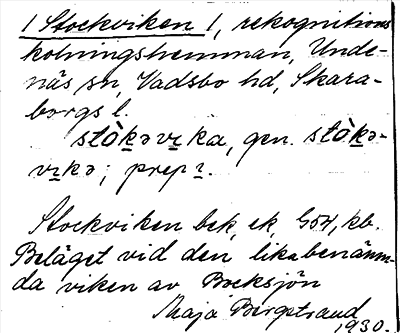 1 Stockviken 1, rekognitions
kolningshemman, Unde-
näs sn, Vadsbo hd, Skara-
borgs l.
stò̀kəvɪka, gen. stò̀kə-
vɪkə; prep ɪ.
Stockviken bek, ek, GSH, kb.
Beläget vid den likabenämn-
da viken av Bocksjön
Maja Bergstrand
1930.